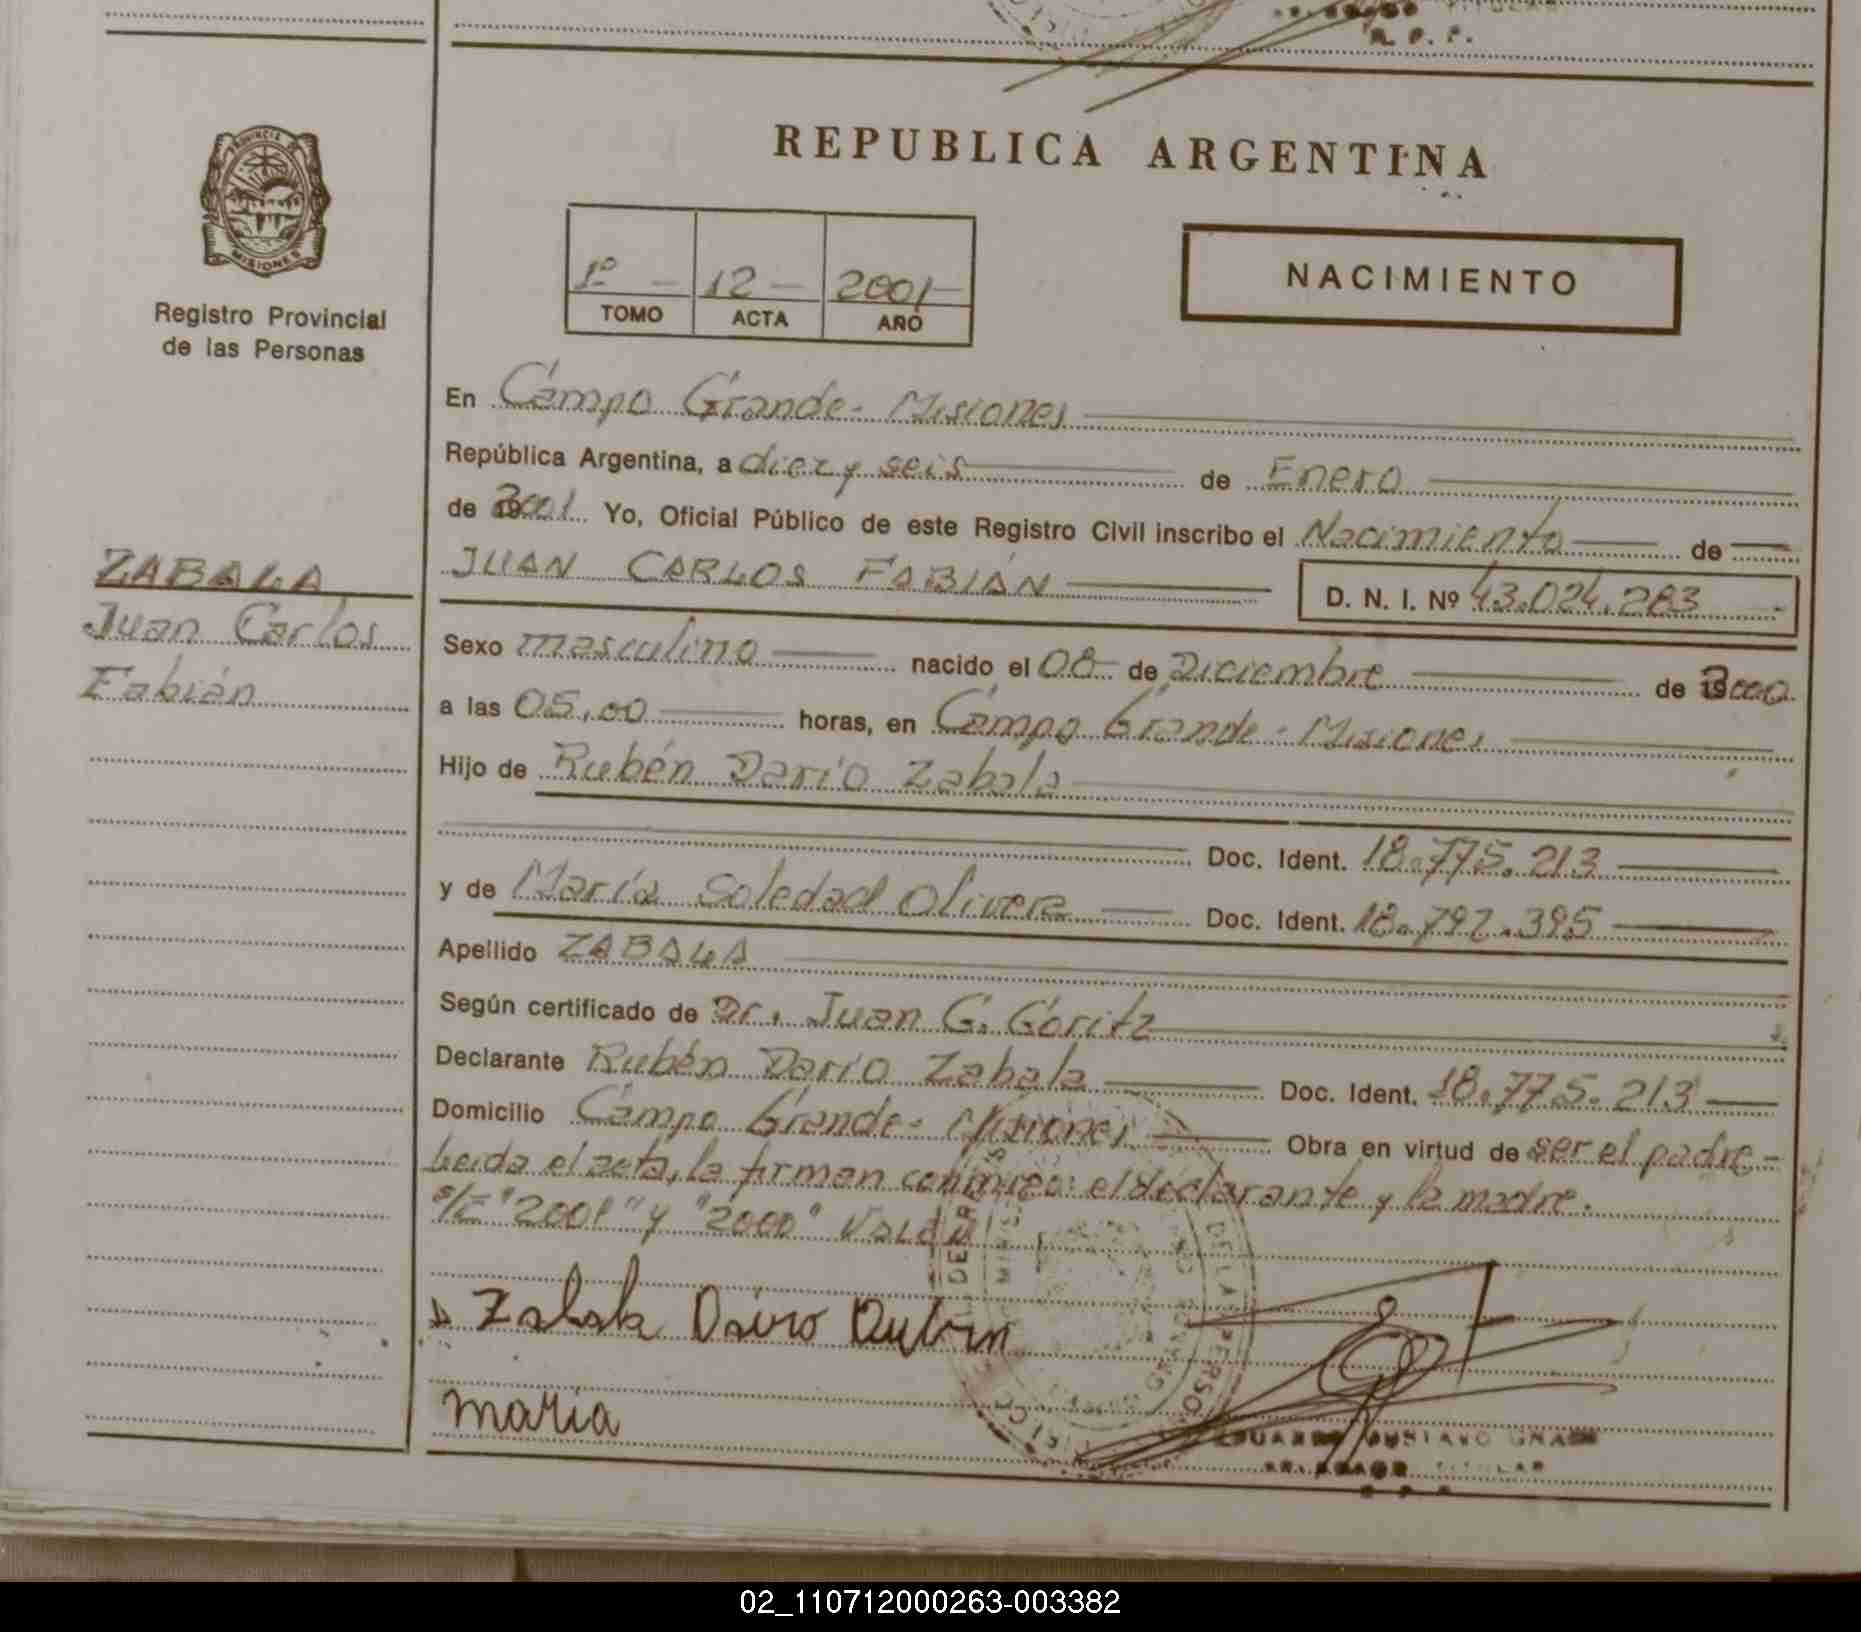 R. P. P.
PROVINCIA DE
MISIONES
Registro Provincial
de las Personas
ZABALA
Juan Carlos
Fabián
REPUBLICA ARGENTINA
1º - 12 - 2001 -
TOMO ACTA AÑO
NACIMIENTO
En Campo Grande - Misiones
República Argentina, a diez y seis de Enero
de 2001 Yo, Oficial Público de este Registro Civil inscribo el Nacimiento de
JUAN CARLOS FABIÁN D. N. I. Nº 43.024.283
Sexo masculino nacido el 08 de Diciembre de 2000
a las 05,00 horas, en Campo Grande - Misiones
Hijo de Rubén Darío Zabala
Doc. Ident. 18.775.213
y de María Soledad Olivera Doc. Ident. 18.792.395
Apellido ZABALA
Según certificado de Dr. Juan G. Goritz
Declarante Rubén Darío Zabala Doc. Ident. 18.775.213
Domicilio Campo Grande - Misiones Obra en virtud de ser el padre -
Leída el acta, la firman conmigo: el declarante y la madre.
s/E "2001" y "2000" VALEN
Zabala Dairo Rubin
maria
GUSTAVO
TITULAR
R. P. P.
02_110712000263-003382